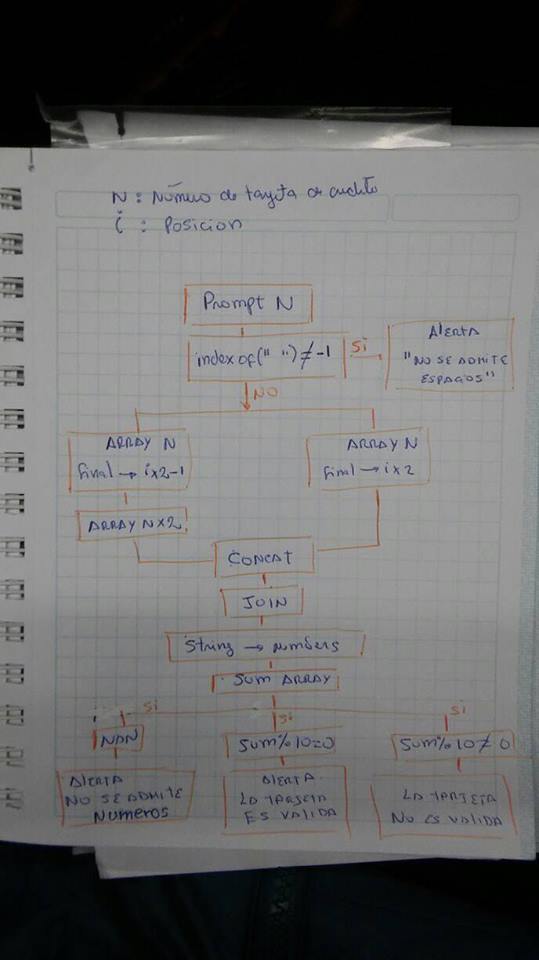 N : Número de tarjeta de credito
i : Posicion
Prompt N
index of (" ") ≠ -1
Si
Alerta
"No SE ADMITE
ESPACIOS"
NO
ARRAY N
final → ix2-1
ARRAY N
final → ix2
ARRAY NX2
CONCAT
JOIN
String → numbers
SUM ARRAY
Si
Si
Si
NAN
Sum%10=0
Sum%10≠0
Alerta
No SE ADMITE
Numeros
Alerta
LA TARJETA
ES VALIDA
LA TARJETA
No ES VALIDA